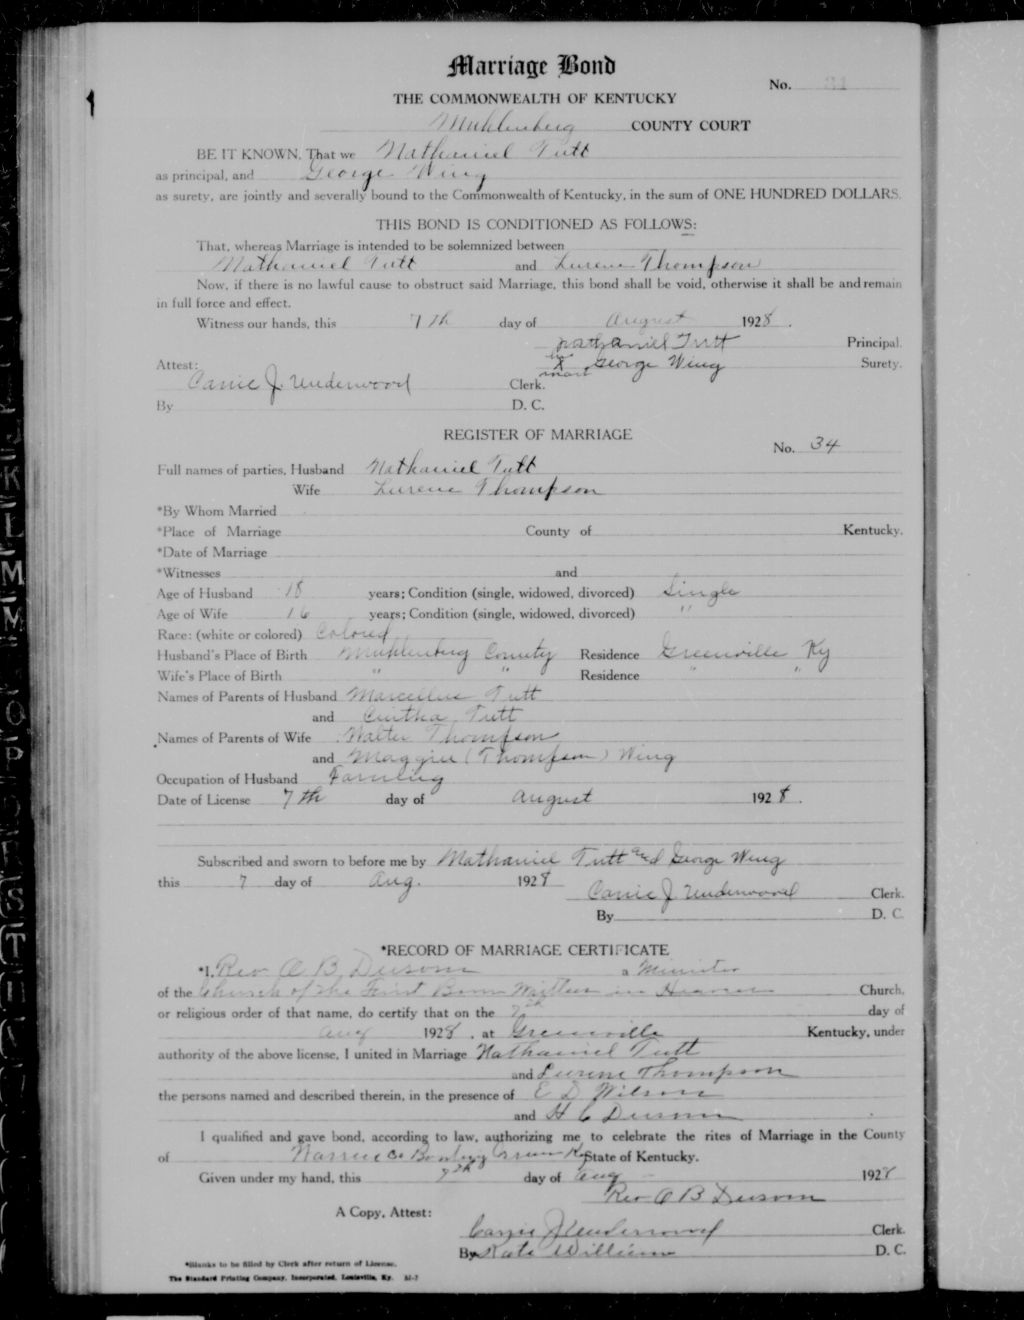 Marriage Bond
No. 31
THE COMMONWEALTH OF KENTUCKY
Muhlenberg COUNTY COURT
BE IT KNOWN, That we Nathaniel Tutt
as principal, and George Wing
as surety, are jointly and severally bound to the Commonwealth of Kentucky, in the sum of ONE HUNDRED DOLLARS.
THIS BOND IS CONDITIONED AS FOLLOWS:
That, whereas Marriage is intended to be solemnized between
Nathaniel Tutt and Lurene Thompson
Now, if there is no lawful cause to obstruct said Marriage, this bond shall be void, otherwise it shall be and remain
in full force and effect.
Witness our hands, this 7th day of August 1928.
Nathaniel Tutt Principal.
Attest: his X mark George Wing Surety.
Carrie J. Underwood Clerk.
By D. C.
REGISTER OF MARRIAGE
No. 34
Full names of parties, Husband Nathaniel Tutt
Wife Lurene Thompson
*By Whom Married
*Place of Marriage County of Kentucky.
*Date of Marriage
*Witnesses and
Age of Husband 18 years; Condition (single, widowed, divorced) Single
Age of Wife 16 years; Condition (single, widowed, divorced) "
Race: (white or colored) Colored
Husband's Place of Birth Muhlenberg County Residence Greenville Ky
Wife's Place of Birth " " Residence " "
Names of Parents of Husband Marcellus Tutt
and Tutt
Names of Parents of Wife Walter Thompson
and Maggie (Thompson) Wing
Occupation of Husband Farming
Date of License 7th day of August 1928.
Subscribed and sworn to before me by Nathaniel Tutt and George Wing
this 7 day of Aug. 1928
Carrie J. Underwood Clerk.
By D. C.
*RECORD OF MARRIAGE CERTIFICATE
*I, Rev O B a Minister
of the Church of the First Born Written in Heaven Church,
or religious order of that name, do certify that on the 7th day of
Aug 1928, at Greenville Kentucky, under
authority of the above license, I united in Marriage Nathaniel Tutt
and Lurene Thompson
the persons named and described therein, in the presence of E D Wilson
and H C
I qualified and gave bond, according to law, authorizing me to celebrate the rites of Marriage in the County
of Warren Co Bowling Green Ky State of Kentucky.
Given under my hand, this 7th day of Aug 1928
Rev O B
A Copy, Attest:
Carrie J Underwood Clerk.
By Kate Williams D. C.
*Blanks to be filled by Clerk after return of License.
The Standard Printing Company, Incorporated, Louisville, Ky. 51-7
K
L
M
N
O
P
R
S
T